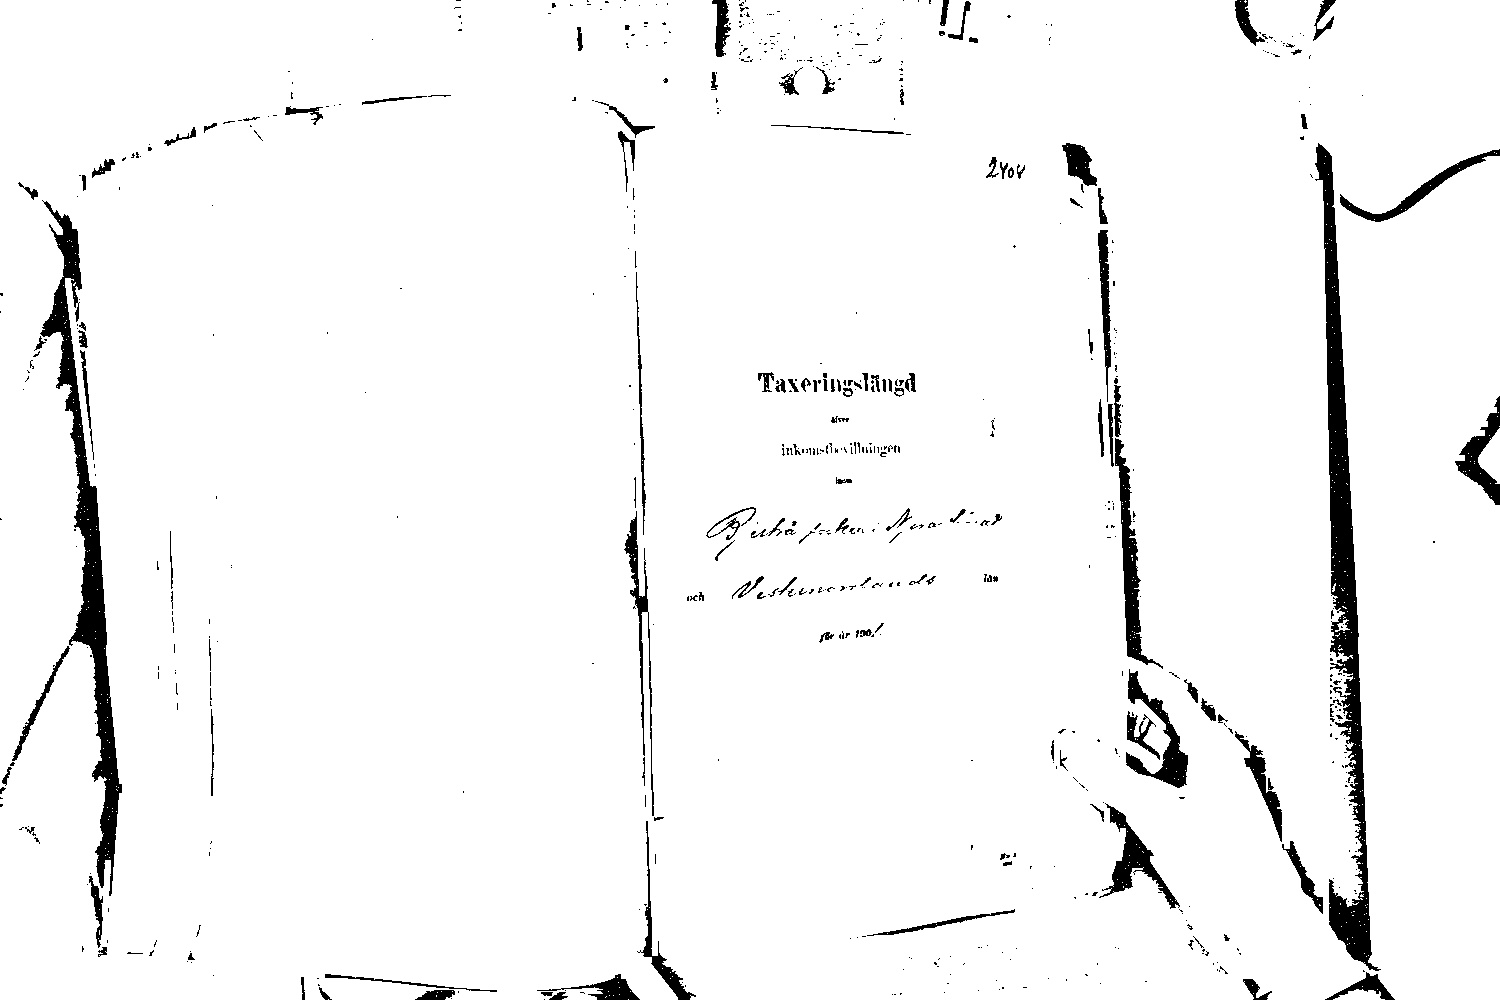 2404
Taxeringslängd
öfver
inkomstbevillningen
inom
Bjertrå socken i Nora
och Vesternorrlands län
för år 1901.